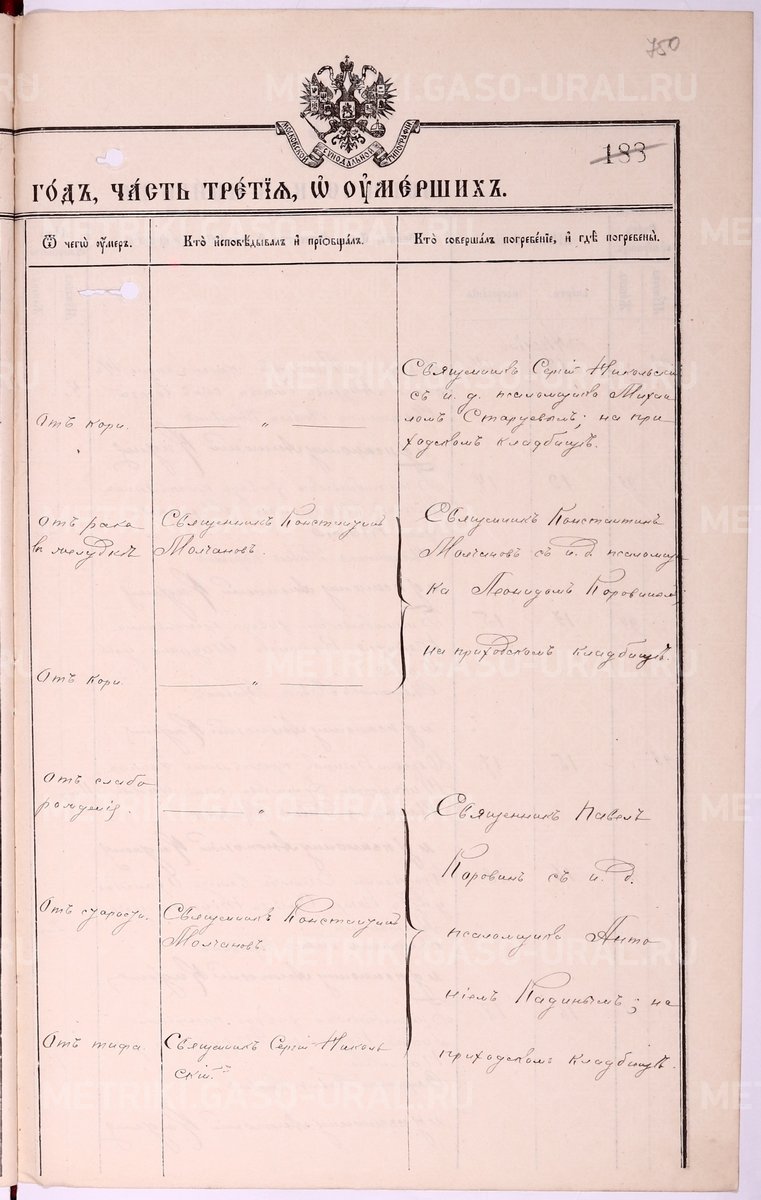 750
METRIKI.GASO-URAL.RU
МОСКОВСКОЙ СѴНОДАЛЬНОЙ ТИПОГРАФІИ
183
го́дъ, ча́сть тре́тїѧ, ѡ҆ оу҆ме́ршихъ.
Ѿ чегѡ̀ оу҆́меръ.
Кто̀ и҆сповѣ́дывалъ и҆ прїѻбща́лъ.
Кто̀ соверша́лъ погребе́нїе, и҆ гдѣ̀ погребены̀.
Отъ кори.
"
Священникъ Сергій Никольскій
съ и. д. псаломщика Михаи
ломъ Старцевымъ; на при
ходскомъ кладбищѣ.
Отъ рака
въ желудкѣ
Священникъ Константинъ
Молчановъ.
Священникъ Константинъ
Молчановъ съ и. д. псаломщи
ка Леонидомъ Коровинымъ;
на приходскомъ кладбищѣ.
Отъ кори.
"
Отъ слабо
рожденія.
"
Священникъ Павелъ
Коровинъ съ и. д.
псаломщика Анто
ніемъ Кадинымъ; на
приходскомъ кладбищѣ.
Отъ старости.
Священникъ Константинъ
Молчановъ.
Отъ тифа.
Священникъ Сергій Николь
скій.